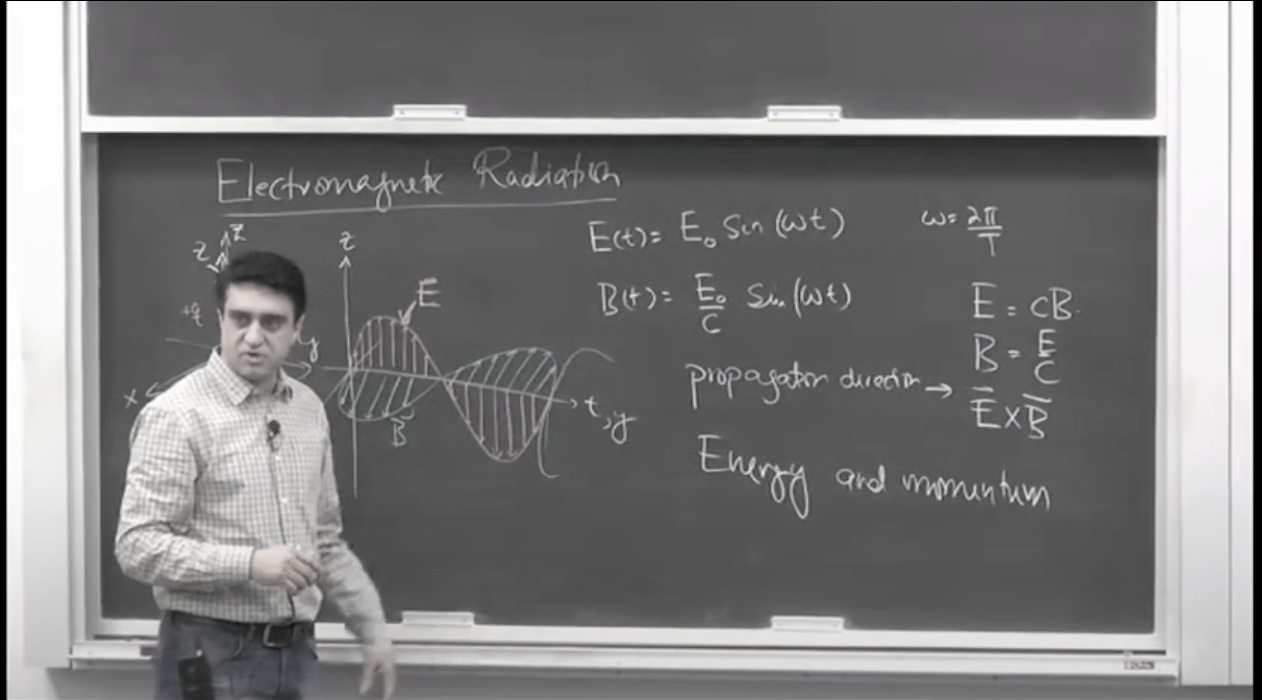 Electromagnetic Radiation
z
z
+q
y
x
z
E
B
t, y
E(t) = E₀ Sin (ωt)
ω = 2π/T
B(t) = E₀/C Sin (ωt)
E = cB.
B = E/C
propagation direction → E̅ x B̅
Energy and momentum